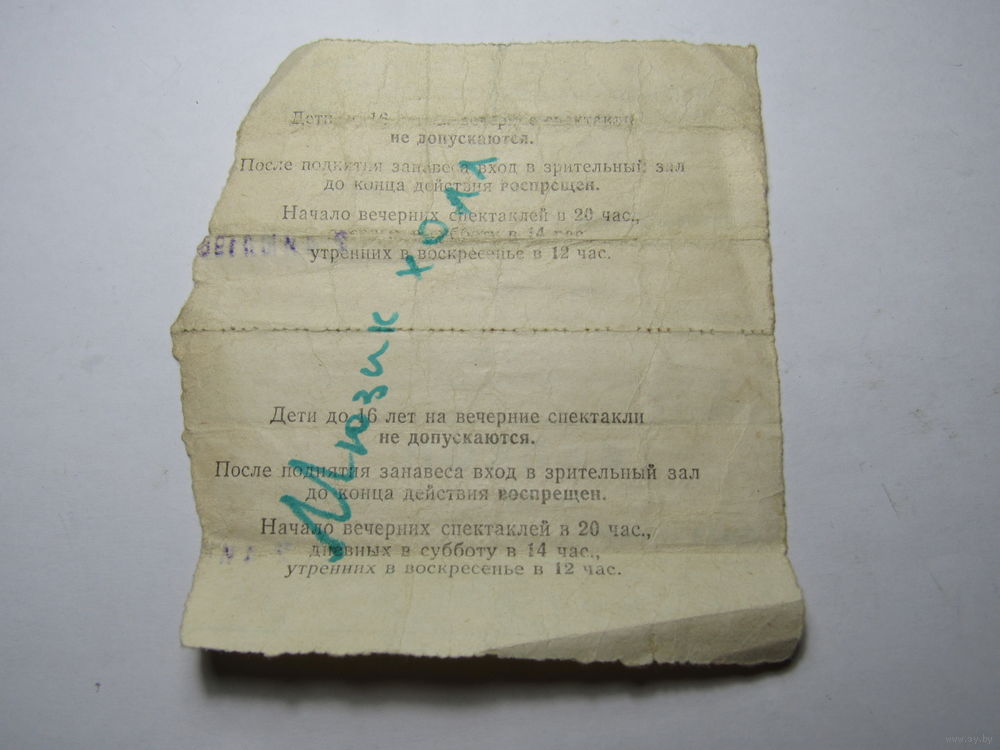 Дети до 16 лет на вечерние спектакли
не допускаются.
После поднятия занавеса вход в зрительный зал
до конца действия воспрещен.
Начало вечерних спектаклей в 20 час.,
дневных в субботу в 14 час.,
утренних в воскресенье в 12 час.
Дети до 16 лет на вечерние спектакли
не допускаются.
После поднятия занавеса вход в зрительный зал
до конца действия воспрещен.
Начало вечерних спектаклей в 20 час.,
дневных в субботу в 14 час.,
утренних в воскресенье в 12 час.
Мюзик холл
www.ay.by